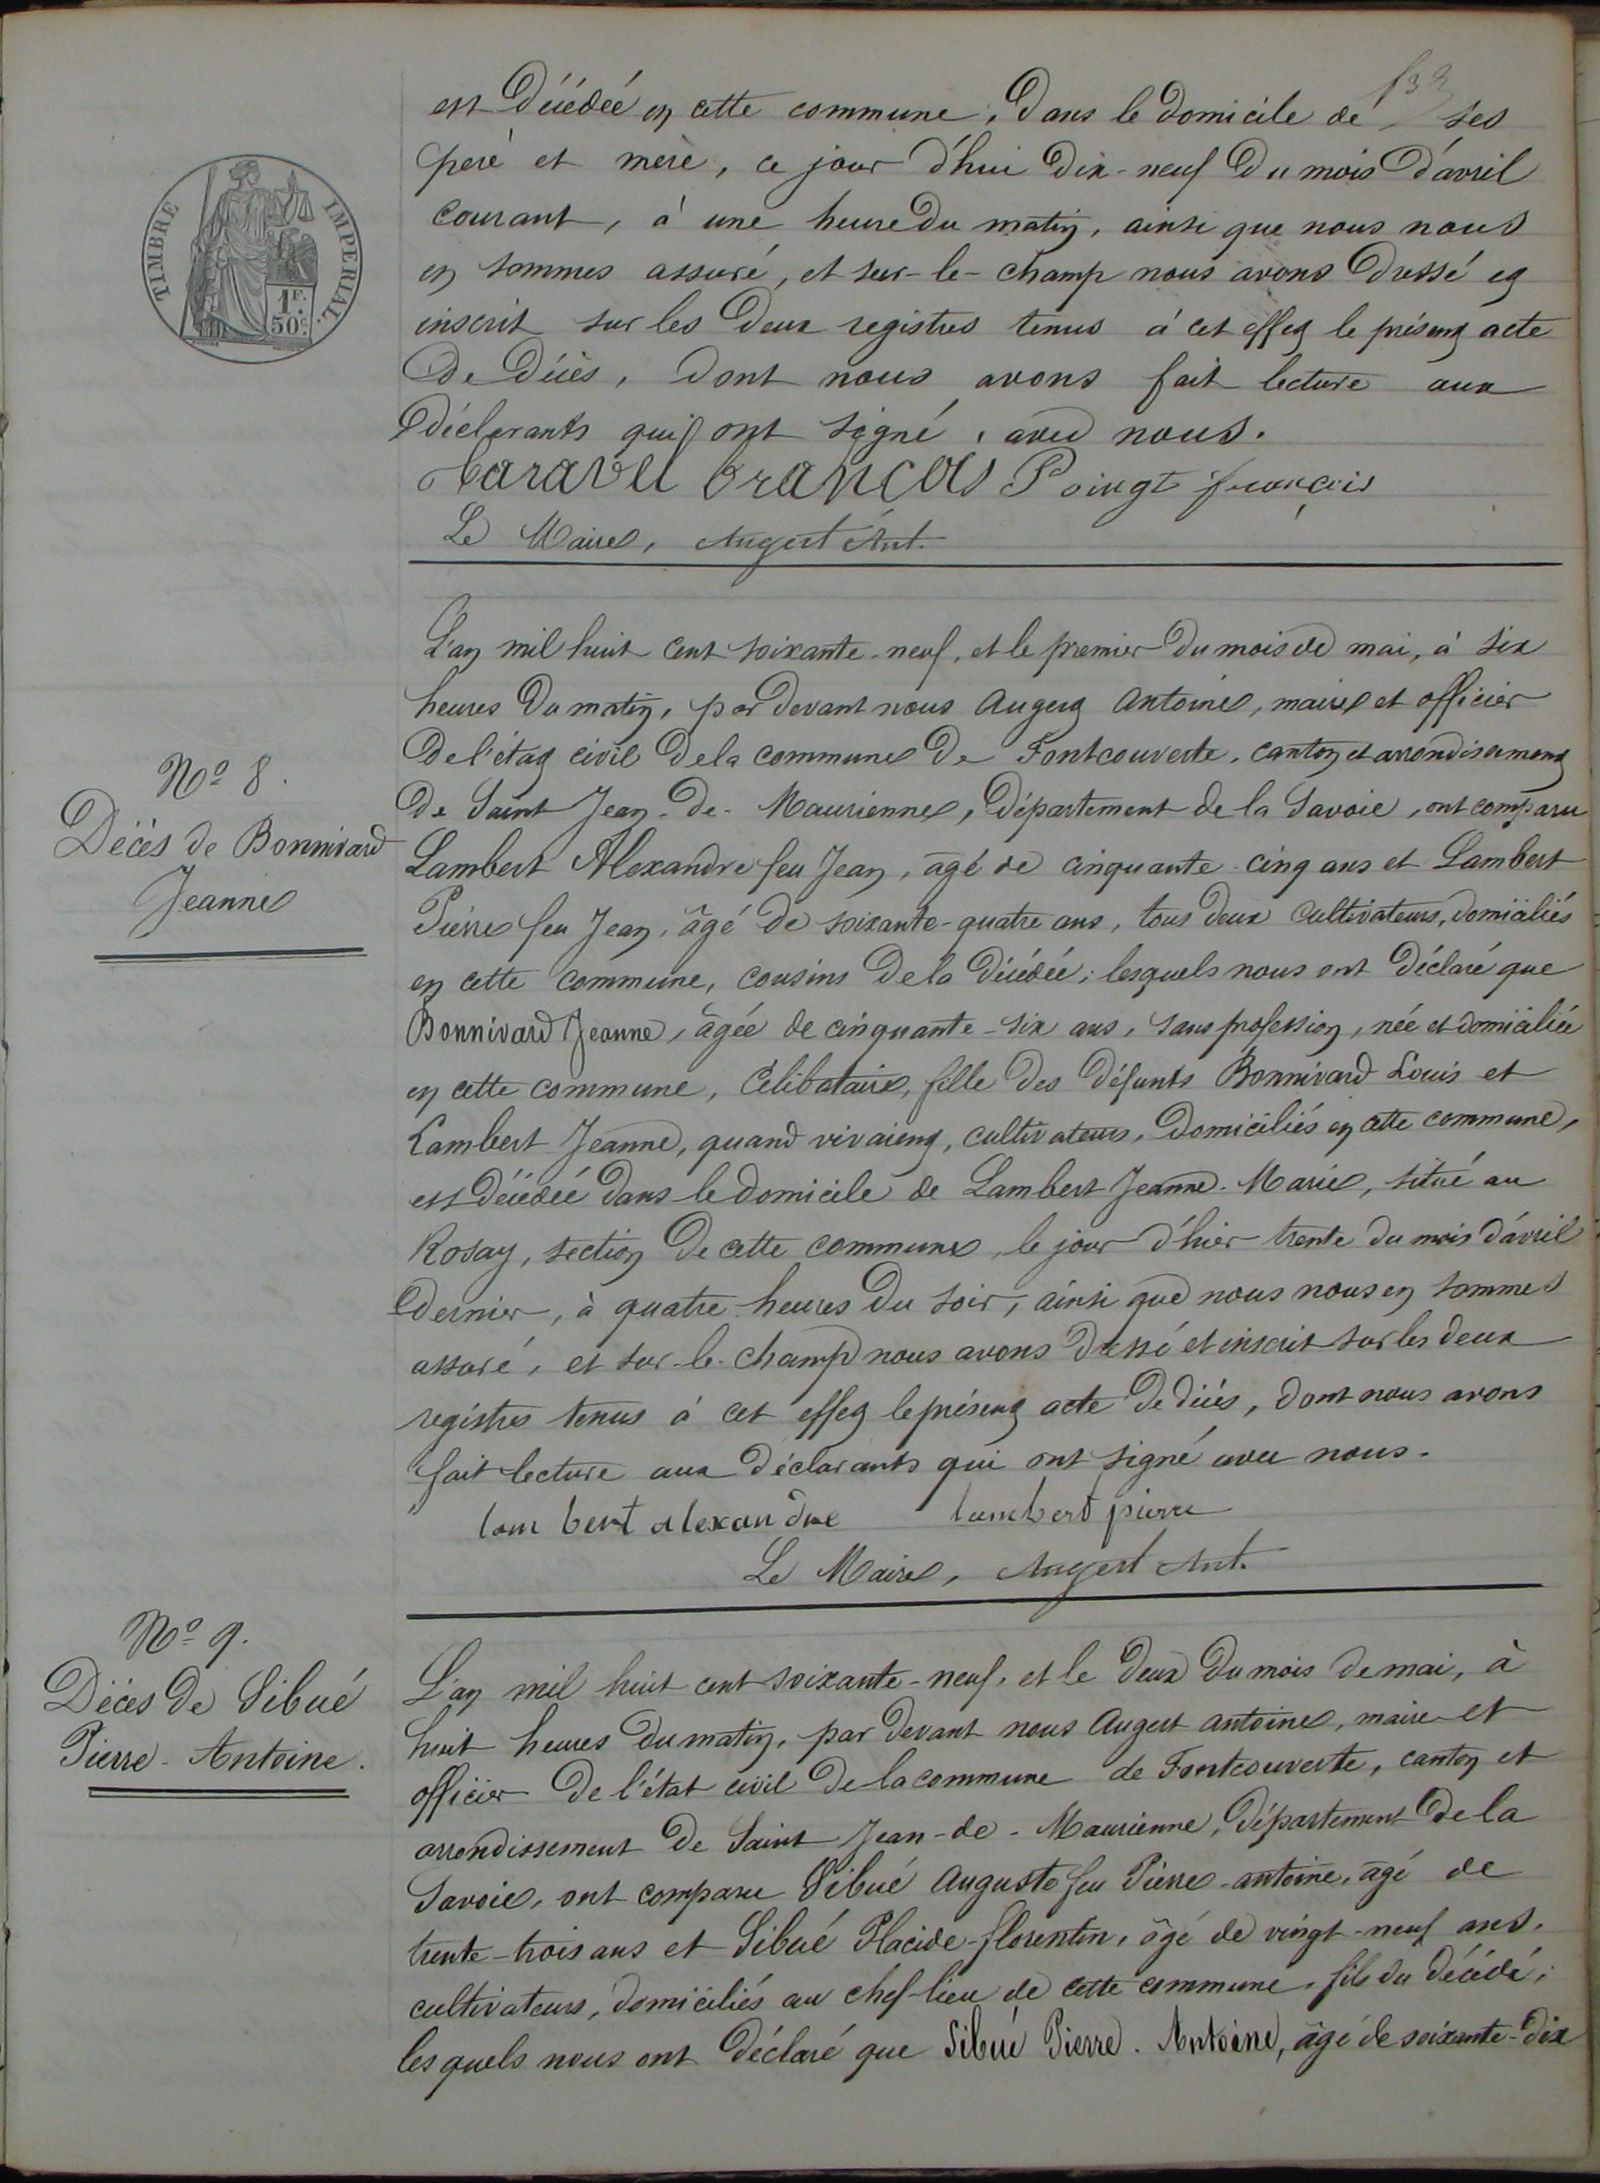 est décédée en cette commune, dans le domicile de ses
père et mère, ce jour d'hui dix-neuf du mois d'avril
courant, à une heure du matin, ainsi que nous nous
en sommes assuré, et sur-le-champ nous avons dressé et
inscrit sur les deux registres tenus à cet effet le présent acte
de décès, dont nous avons fait lecture aux
déclarants qui ont signé, avec nous.
Caravel françois Poingt françois
Le Maire, Augert Ant.
TIMBRE IMPERIAL.
1F.
50c
L'an mil huit cent soixante-neuf, et le premier du mois de mai, à six
heures du matin, par devant nous Augert Antoine, maire et officier
de l'état civil de la commune de Fontcouverte, canton et arrondissement
de Saint Jean-de-Maurienne, département de la Savoie, ont comparu
Lambert Alexandre feu Jean, âgé de cinquante-cinq ans et Lambert
Pierre feu Jean, âgé de soixante-quatre ans, tous deux cultivateurs, domiciliés
en cette commune, cousins de la décédée; lesquels nous ont déclaré que
Bonnivard Jeanne, âgée de cinquante-six ans, sans profession, née et domiciliée
en cette commune, célibataire, fille des défunts Bonnivard Louis et
Lambert Jeanne, quand vivaient, cultivateurs, domiciliés en cette commune,
est décédée dans le domicile de Lambert Jeanne-Marie, situé au
Rosay, section de cette commune, le jour d'hier trente du mois d'avril
dernier, à quatre heures du soir, ainsi que nous nous en sommes
assuré, et sur-le-champ nous avons dressé et inscrit sur les deux
registres tenus à cet effet le présent acte de décès, dont nous avons
fait lecture aux déclarants qui ont signé avec nous.
lambert alexandre lambert pierre
Le Maire, Augert Ant.
No 8.
Décès de Bonnivard
Jeanne
No 9.
Décès de Sibué
Pierre-Antoine.
L'an mil huit cent soixante-neuf, et le deux du mois de mai, à
huit heures du matin, par devant nous Augert Antoine, maire et
officier de l'état civil de la commune de Fontcouverte, canton et
arrondissement de Saint Jean-de-Maurienne, département de la
Savoie, ont comparu Sibué Auguste feu Pierre-antoine, âgé de
trente-trois ans et Sibué Placide-florentin, âgé de vingt-neuf ans,
cultivateurs, domiciliés au chef-lieu de cette commune, fils du décédé;
lesquels nous ont déclaré que Sibué Pierre-Antoine, âgé de soixante-dix